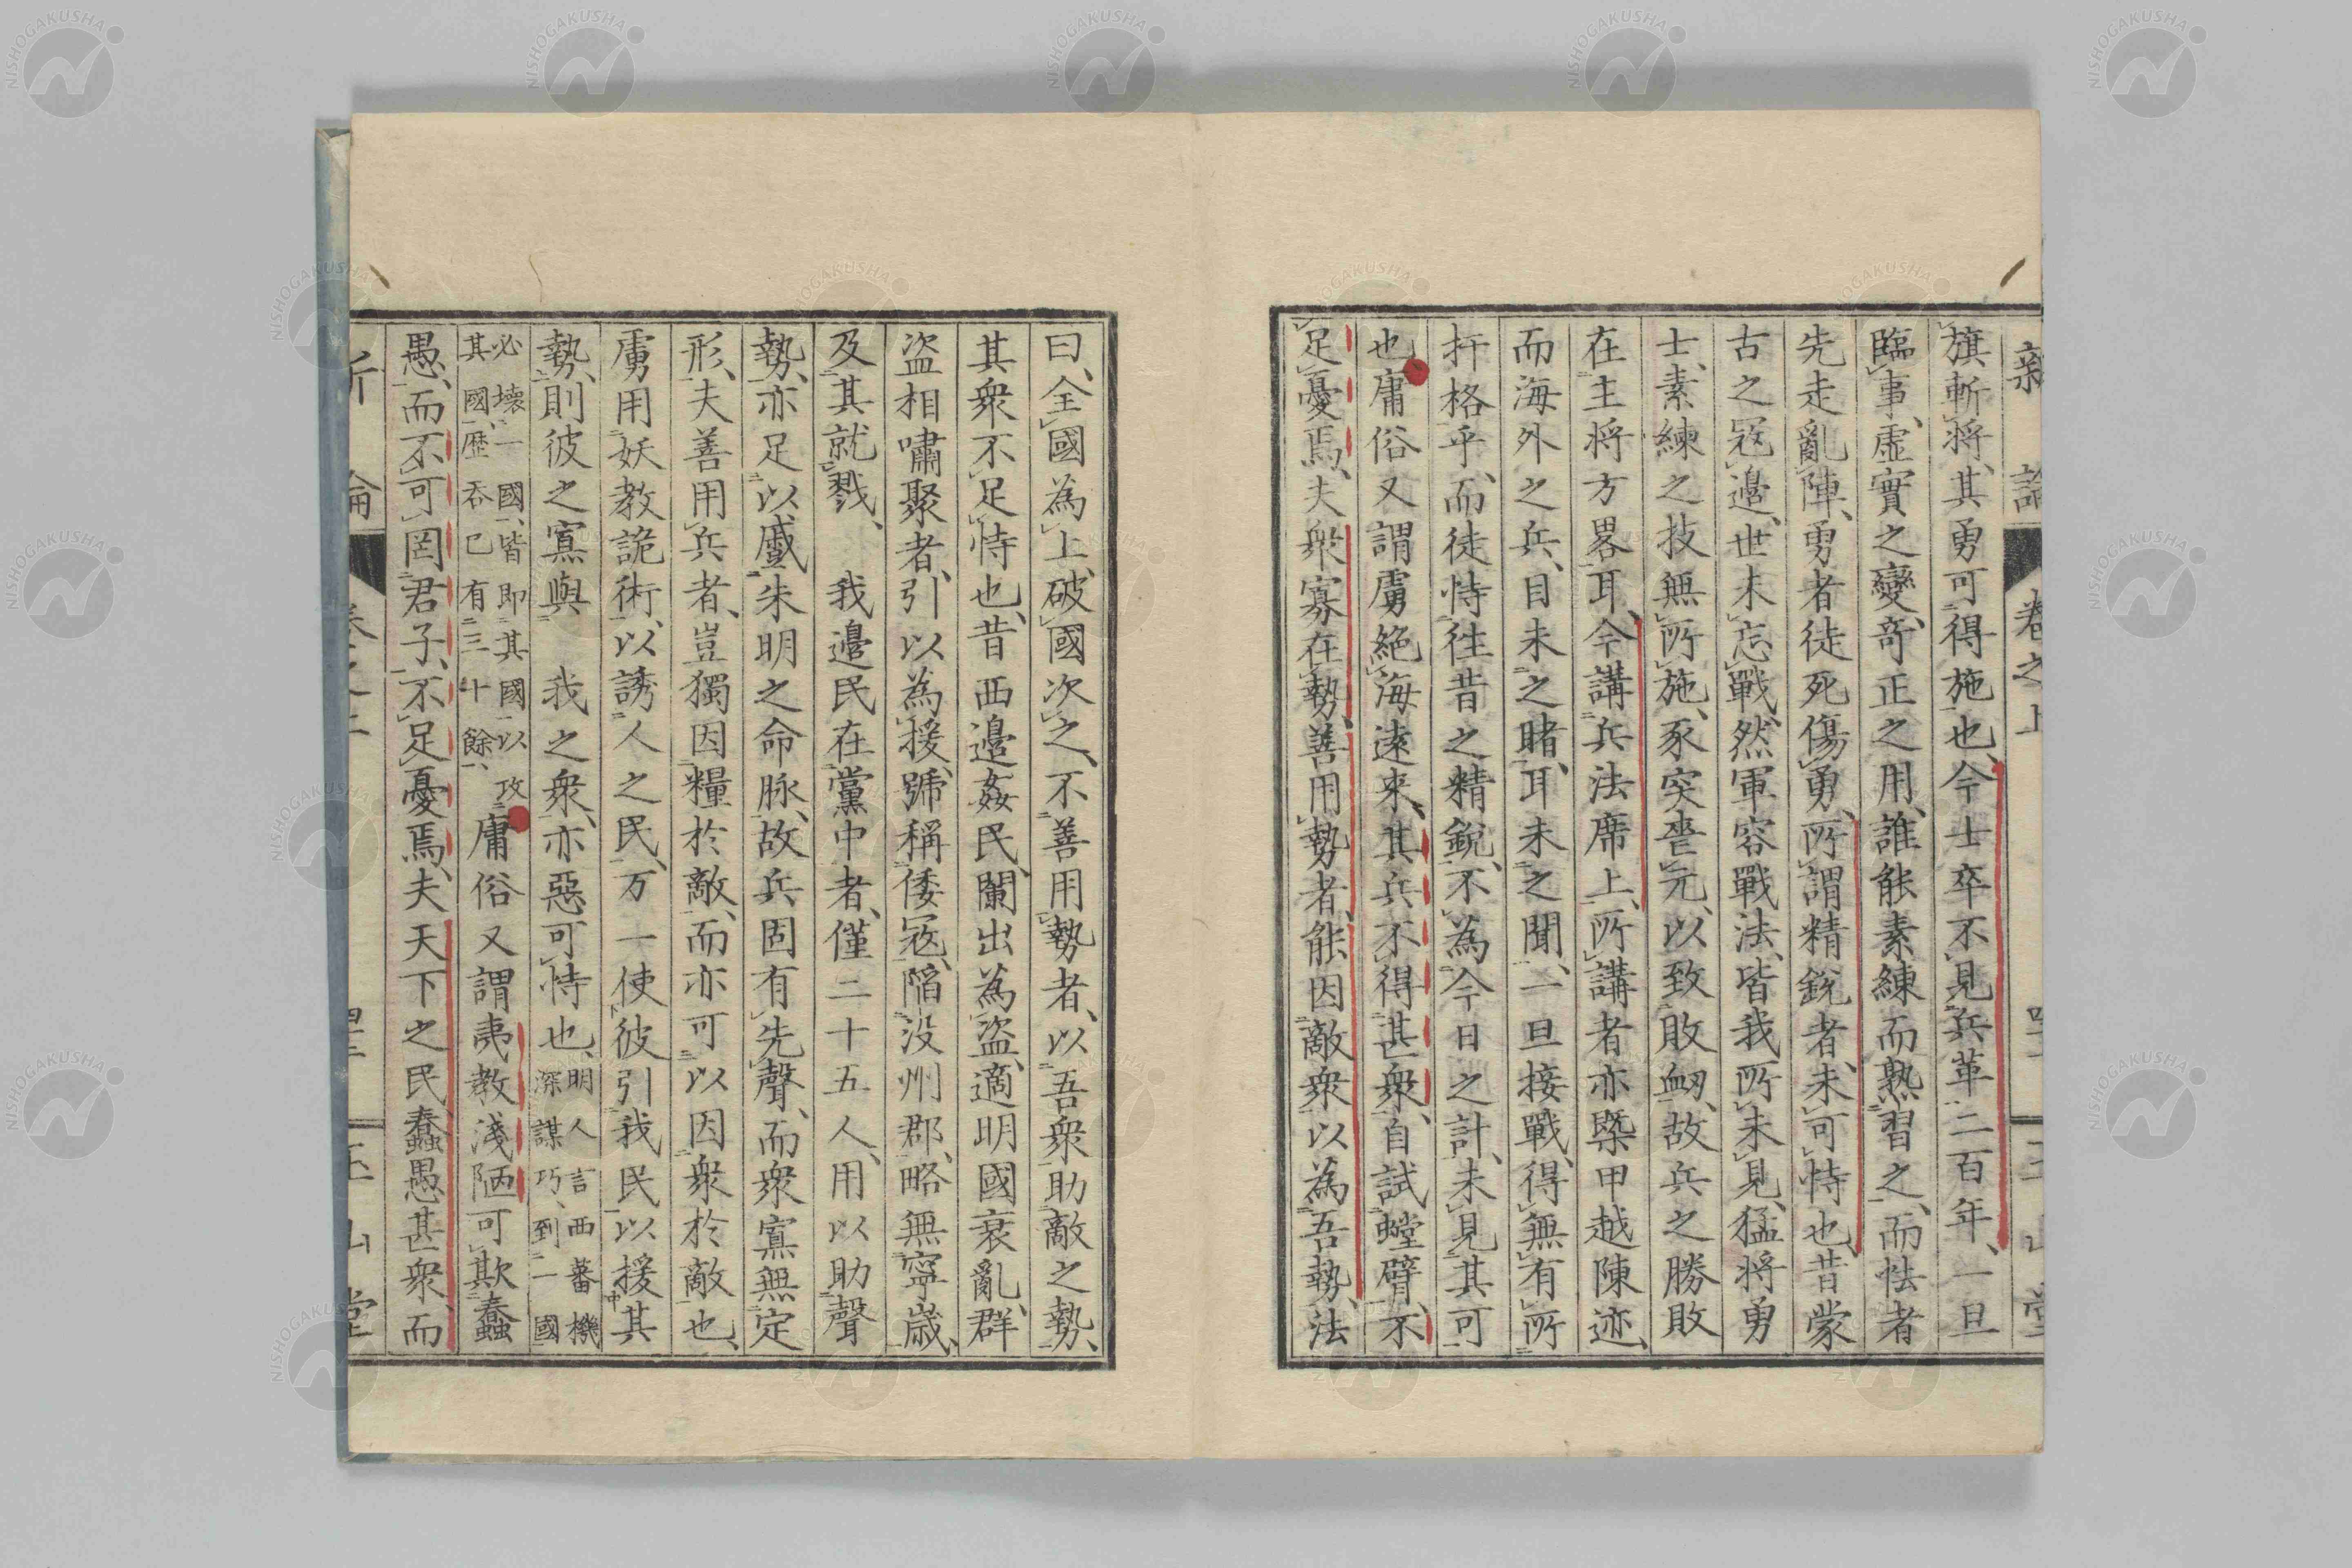 新論　卷之上
旗斬將、其勇可得施也、今士卒不見兵革二百年、一旦
臨事、虛實之變、奇正之用、誰能素練而熟習之、而怯者
先走亂陣、勇者徒死傷勇、所謂精銳者、未可恃也、昔蒙
古之冦邊、世未忘戰、然軍容戰法、皆我所未見、猛將勇
士、素練之技無所施、豕突喪元、以致敗衂、故兵之勝敗
在主將方畧耳、今講兵法席上、所講者亦槩甲越陳迹、
而海外之兵、目未之睹、耳未之聞、一旦接戰、得無有所
扞格乎、而徒恃往昔之精銳、不為今日之計、未見其可
也、庸俗又謂虜絕海遠來、其兵不得甚衆、自試螳臂、不
足憂焉、夫衆寡在勢、善用勢者、能因敵衆以為吾勢、法
曰、全國為上、破國次之、不善用勢者、以吾衆助敵之勢、
其衆不足恃也、昔西邊姦民、闌出為盜、適明國衰亂、群
盜相嘯聚者、引以為援、號稱倭冦、陷没州郡、略無寧歲、
及其就戮、我邊民在黨中者、僅二十五人、用以助聲
勢、亦足以蹙朱明之命脉、故兵固有先聲、而衆寡無定
形、夫善用兵者、豈獨因糧於敵、而亦可以因衆於敵也、
虜用妖教詭術、以誘人之民、万一使彼引我民以援其
勢、則彼之寡與我之衆、亦惡可恃也、明人言西蕃機
深謀巧、到一國
必壞一國、皆即其國以攻
其國、歷吞已有三十餘、庸俗又謂夷教淺陋可欺蠢
愚、而不可罔君子、不足憂焉、夫天下之民蠢愚甚衆、而